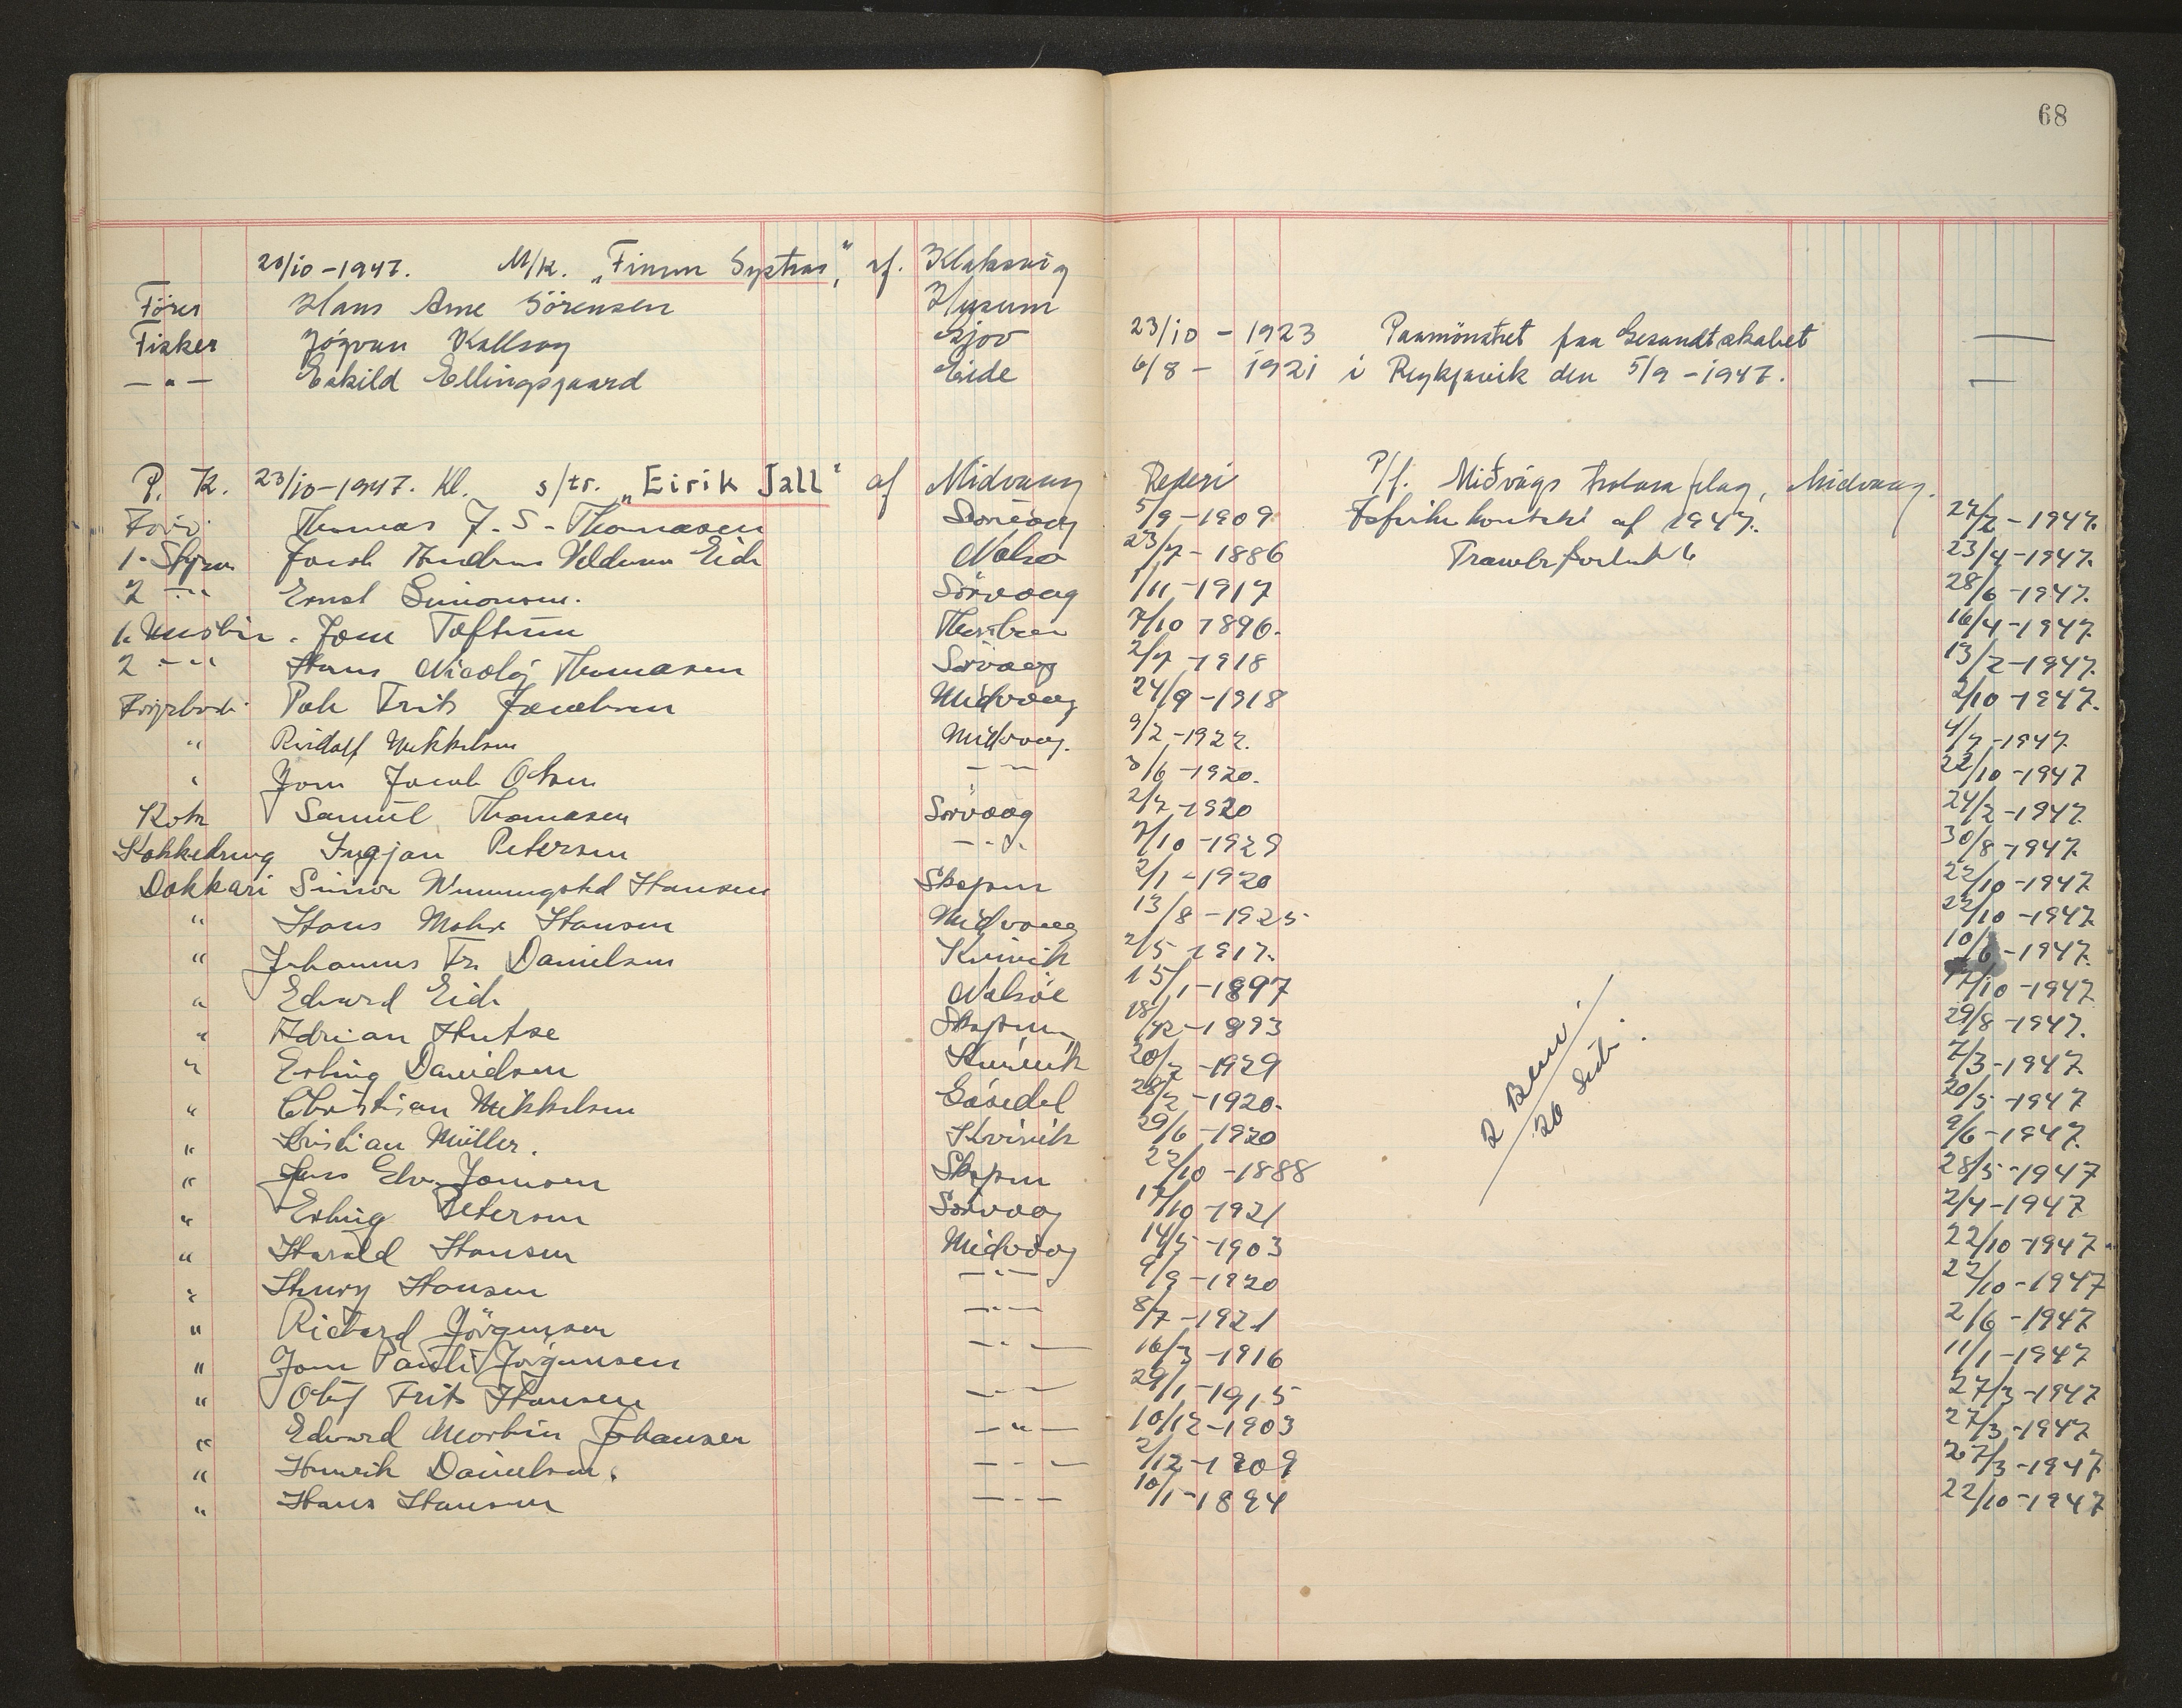 68
20/10-1947. M/k. „Fimm Systrar," af. Klaksvig
Förer Hans Arne Sörensen Husum
Fisker Jógvan Kallsoy Gjov 23/10 - 1923 Paamönstret paa Gesandtskabet —
— " — Eskild Ellingsgaard Eide 6/8 - 1921 i Reykjavik den 5/9 - 1947. —
P. K. 23/10-1947. Kl. s/tr. „Eirik Jall" af Midvaag Rederi P/f. Miðvágs trolara felag, Midvaag.
Thomas J. S. Thomasen Sörvaag 5/9-1909 af 1947. 27/2-1947.
1. Styrm Jacob Andreas Eide Nolsö 23/7-1886 23/4-1947.
2 -"- Ernst Simonsen. Sörvaag 1/11-1917 28/6-1947.
1. Jens Toftum 7/10 1896. 16/4-1947.
2 -"- Hans Nicolaj Thomasen Sörvaag 2/7-1918 13/2-1947.
Poli Frits Jacobsen Midvaag 24/9-1918 2/10-1947.
" Mikkelsen Midvaag. 9/2-1922. 4/7-1947.
" Jacob Olsen — — 3/6-1920. 22/10-1947
Kok Samuel Thomasen Sörvaag 2/7-1920 24/2-1947.
Kokkedreng Ingjan Petersen -"- 7/10-1929 30/8-1947.
Dokkari Hansen Skopun 2/1-1920 22/10-1947
" Hans Mohr Hansen Midvaag 13/8-1925 22/10-1947.
" Johannus Fr. Danielsen Kvivik 2/5 1917. 10/6-1947.
" Edvard Eide Nolsöe 15/1-1897 /10-1947
" Adrian Skopun 18/12-1893 29/8-1947.
" Erling Danielsen Kvivik 20/2-1929 7/3-1947.
" Christian Mikkelsen Gaasedal 28/2-1920. 20/5-1947
" Kristian Müller. Kvivik 29/6-1920 9/6-1947.
" Jens Joensen Skopun 22/10-1888 28/5-1947
" Erling Petersen Sörvaag 17/10-1921 2/4-1947
" Harald Hansen Midvaag 14/5-1903 22/10-1947.
" Henry Hansen -"- 9/9-1920 22/10-1947
" Richard Jörgensen -"- 8/7-1921 2/6-1947
" Jörgensen -"- 16/3-1916 11/1-1947
" Oluf Frits Hansen -"- 29/1-1915 27/3-1947
" Edvard Morten Johansen -"- 10/12-1903 27/3-1947
" Henrik Danielsen. -"- 2/12-1909 27/3-1947
" Hans Hansen -"- 10/1-1894 22/10-1947
2
26